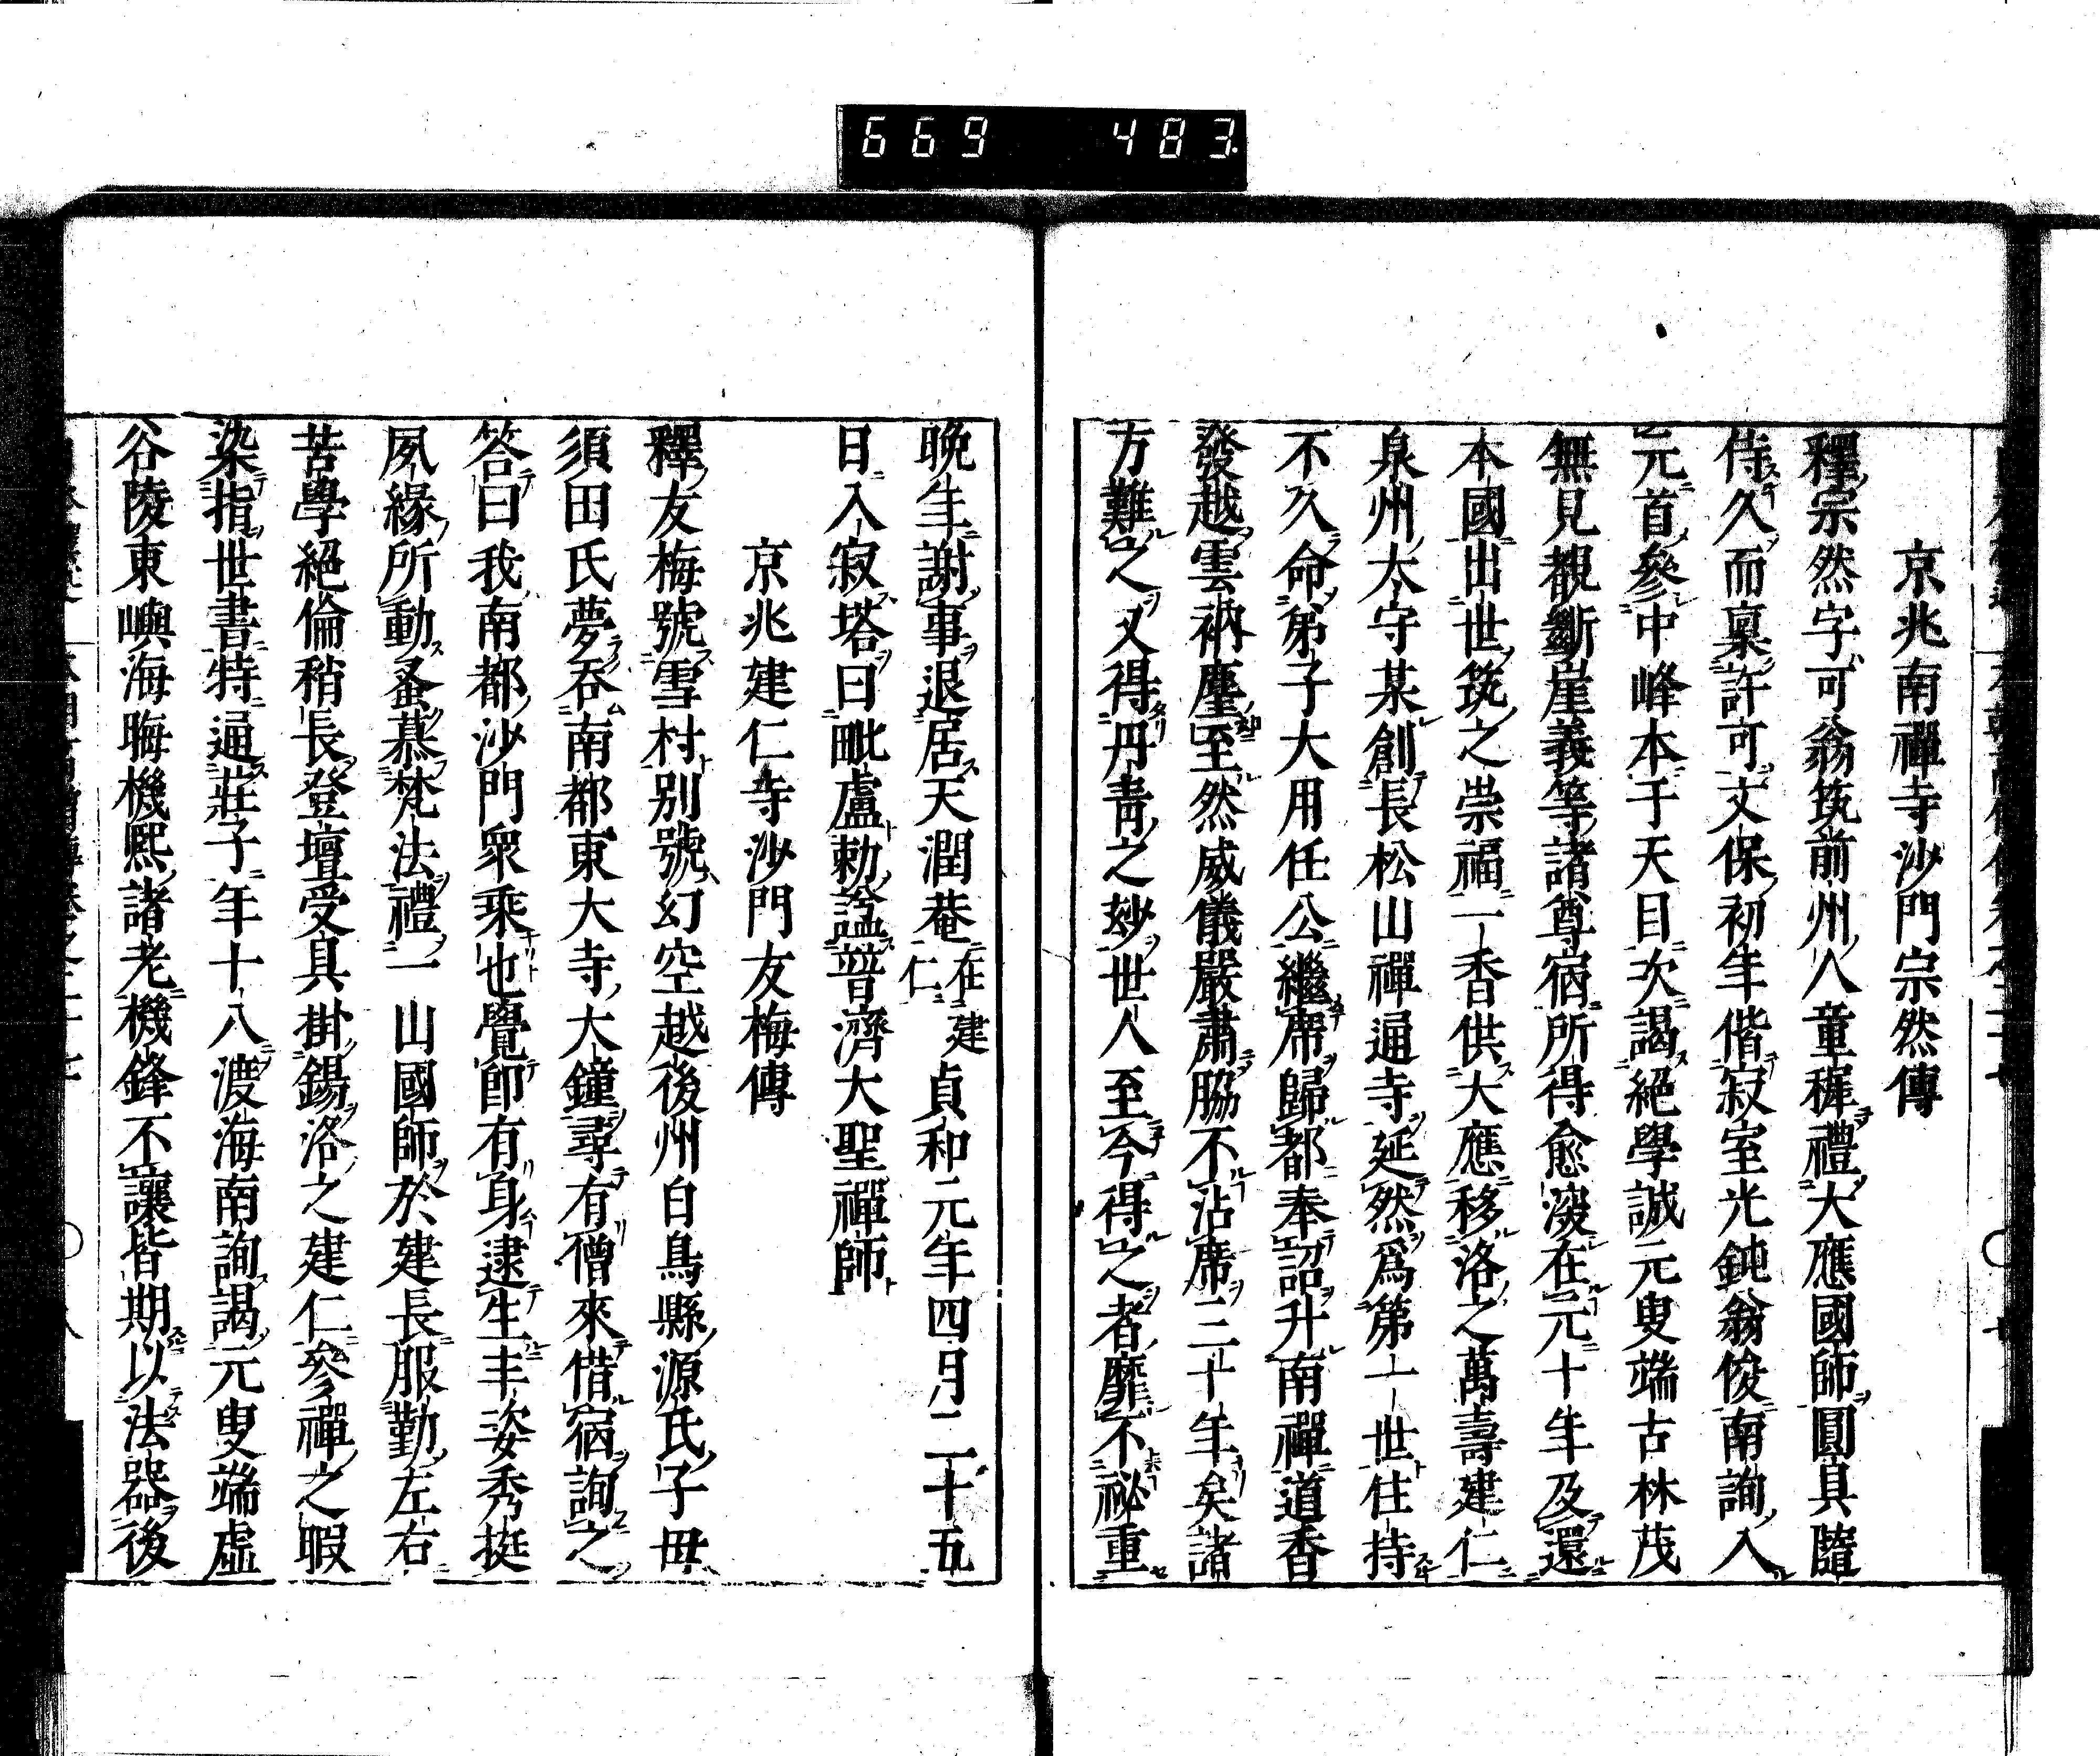 669 483
京兆南禪寺沙門宗然傳
釋宗然字可翁筑前州人童稺禮大應國師圓具隨
侍久而稟許可文保初年偕寂室光鈍翁俊南詢入
元首參中峰本于天目次謁絕學誠元叟端古林茂
無見覩斷崖義等諸尊宿所得愈邃在元十年及還
本國出世筑之崇福一香供大應移洛之萬壽建仁
泉州太守某創長松山禪通寺延然爲第一世住持
不久命弟子大用任公繼席歸都奉詔升南禪道香
發越雲衲麈至然威儀嚴肅脇不沾席三十年矣諸
方難之又得丹青之玅世人至今得之者靡不祕重
晚年謝事退居天潤菴在建仁貞和元年四月二十五
日入寂塔曰毗盧勅謚普濟大聖禪師
京兆建仁寺沙門友梅傳
釋友梅號雪村別號幻空越後州白鳥縣源氏子母
須田氏夢吞南都東大寺大鐘尋有僧來借宿詢之
答曰我南都沙門衆乘也覺卽有身逮生丰姿秀挺
夙緣所動蚤慕梵法禮一山國師於建長服勤左右
苦學絕倫稍長登壇受具掛錫洛之建仁參禪之暇
染指世書特通莊子年十八渡海南詢謁元叟端虛
谷陵東嶼海晦機熙諸老機鋒不讓皆期以法器後